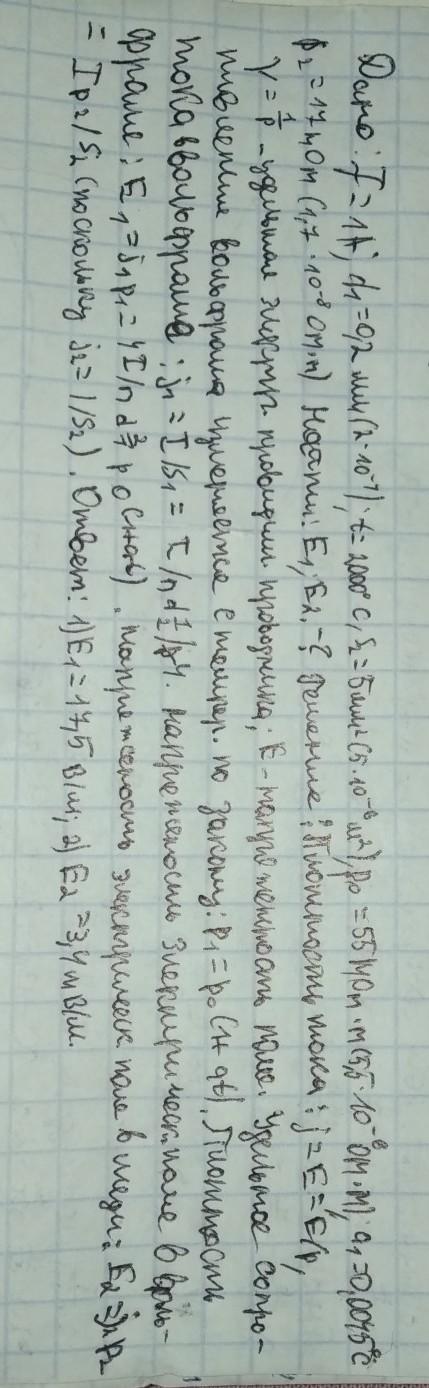 Дано: I = 1A; d₁ = 0,2 мм (2·10⁻⁴); t = 2000°C, S₂ = 5 мм² (5·10⁻⁶ м²), ρ₀ = 55 нОм·м (5,5·10⁻⁸ Ом·м); α₁ = 0,0045°C
ρ₂ = 17 нОм (1,7·10⁻⁸ Ом·м) Найти: E₁, E₂, -? Решение: Плотность тока: j = E = E/ρ,
γ = 1/ρ - удельная электр. проводим проводника; E - напряженность поля. Удельное сопро-
тивление вольфрама изменяется с темпер. по закону: ρ₁ = ρ₀ (1+αt). Плотность
тока в вольфраме: j₁ = I/S₁ = I/πd²₁/4. напряженость электрическ. поле в воль-
фраме: E₁ = j₁ρ₁ = 4I/πd²₁ ρ₀ (1+αt). напряженость электрическ поле в меди: E₂ = j₂ρ₂
= Iρ₂/S₂ (поскольку j₂ = I/S₂). Ответ: 1) E₁ = 17,5 В/м; 2) E₂ = 3,4 мВ/м.